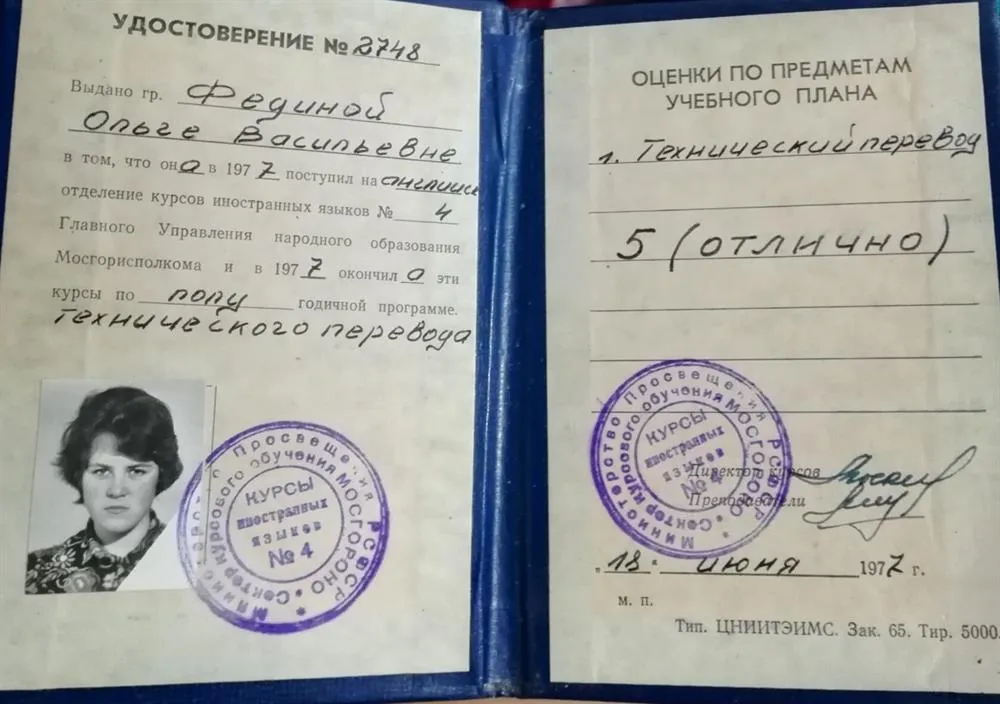 УДОСТОВЕРЕНИЕ № 2748
Выдано гр. Фединой
Ольге Васильевне
в том, что она в 1977 поступил на английск
отделение курсов иностранных языков № 4
Главного Управления народного образования
Мосгорисполкома и в 1977 окончил а эти
курсы по полу годичной программе.
технического перевода
Министерство Просвещения РСФСР
Сектор курсового обучения МОСГОРОНО
КУРСЫ
иностранных
языков
№ 4
ОЦЕНКИ ПО ПРЕДМЕТАМ
УЧЕБНОГО ПЛАНА
1. Технический перевод
5 (отлично)
Министерство Просвещения РСФСР
Сектор курсового обучения МОСГОРОНО
КУРСЫ
иностранных
языков
№ 4
Директор курсов
Преподаватели
„18 " июня 1977 г.
м. п.
Тип. ЦНИИТЭИМС. Зак. 65. Тир. 5000.